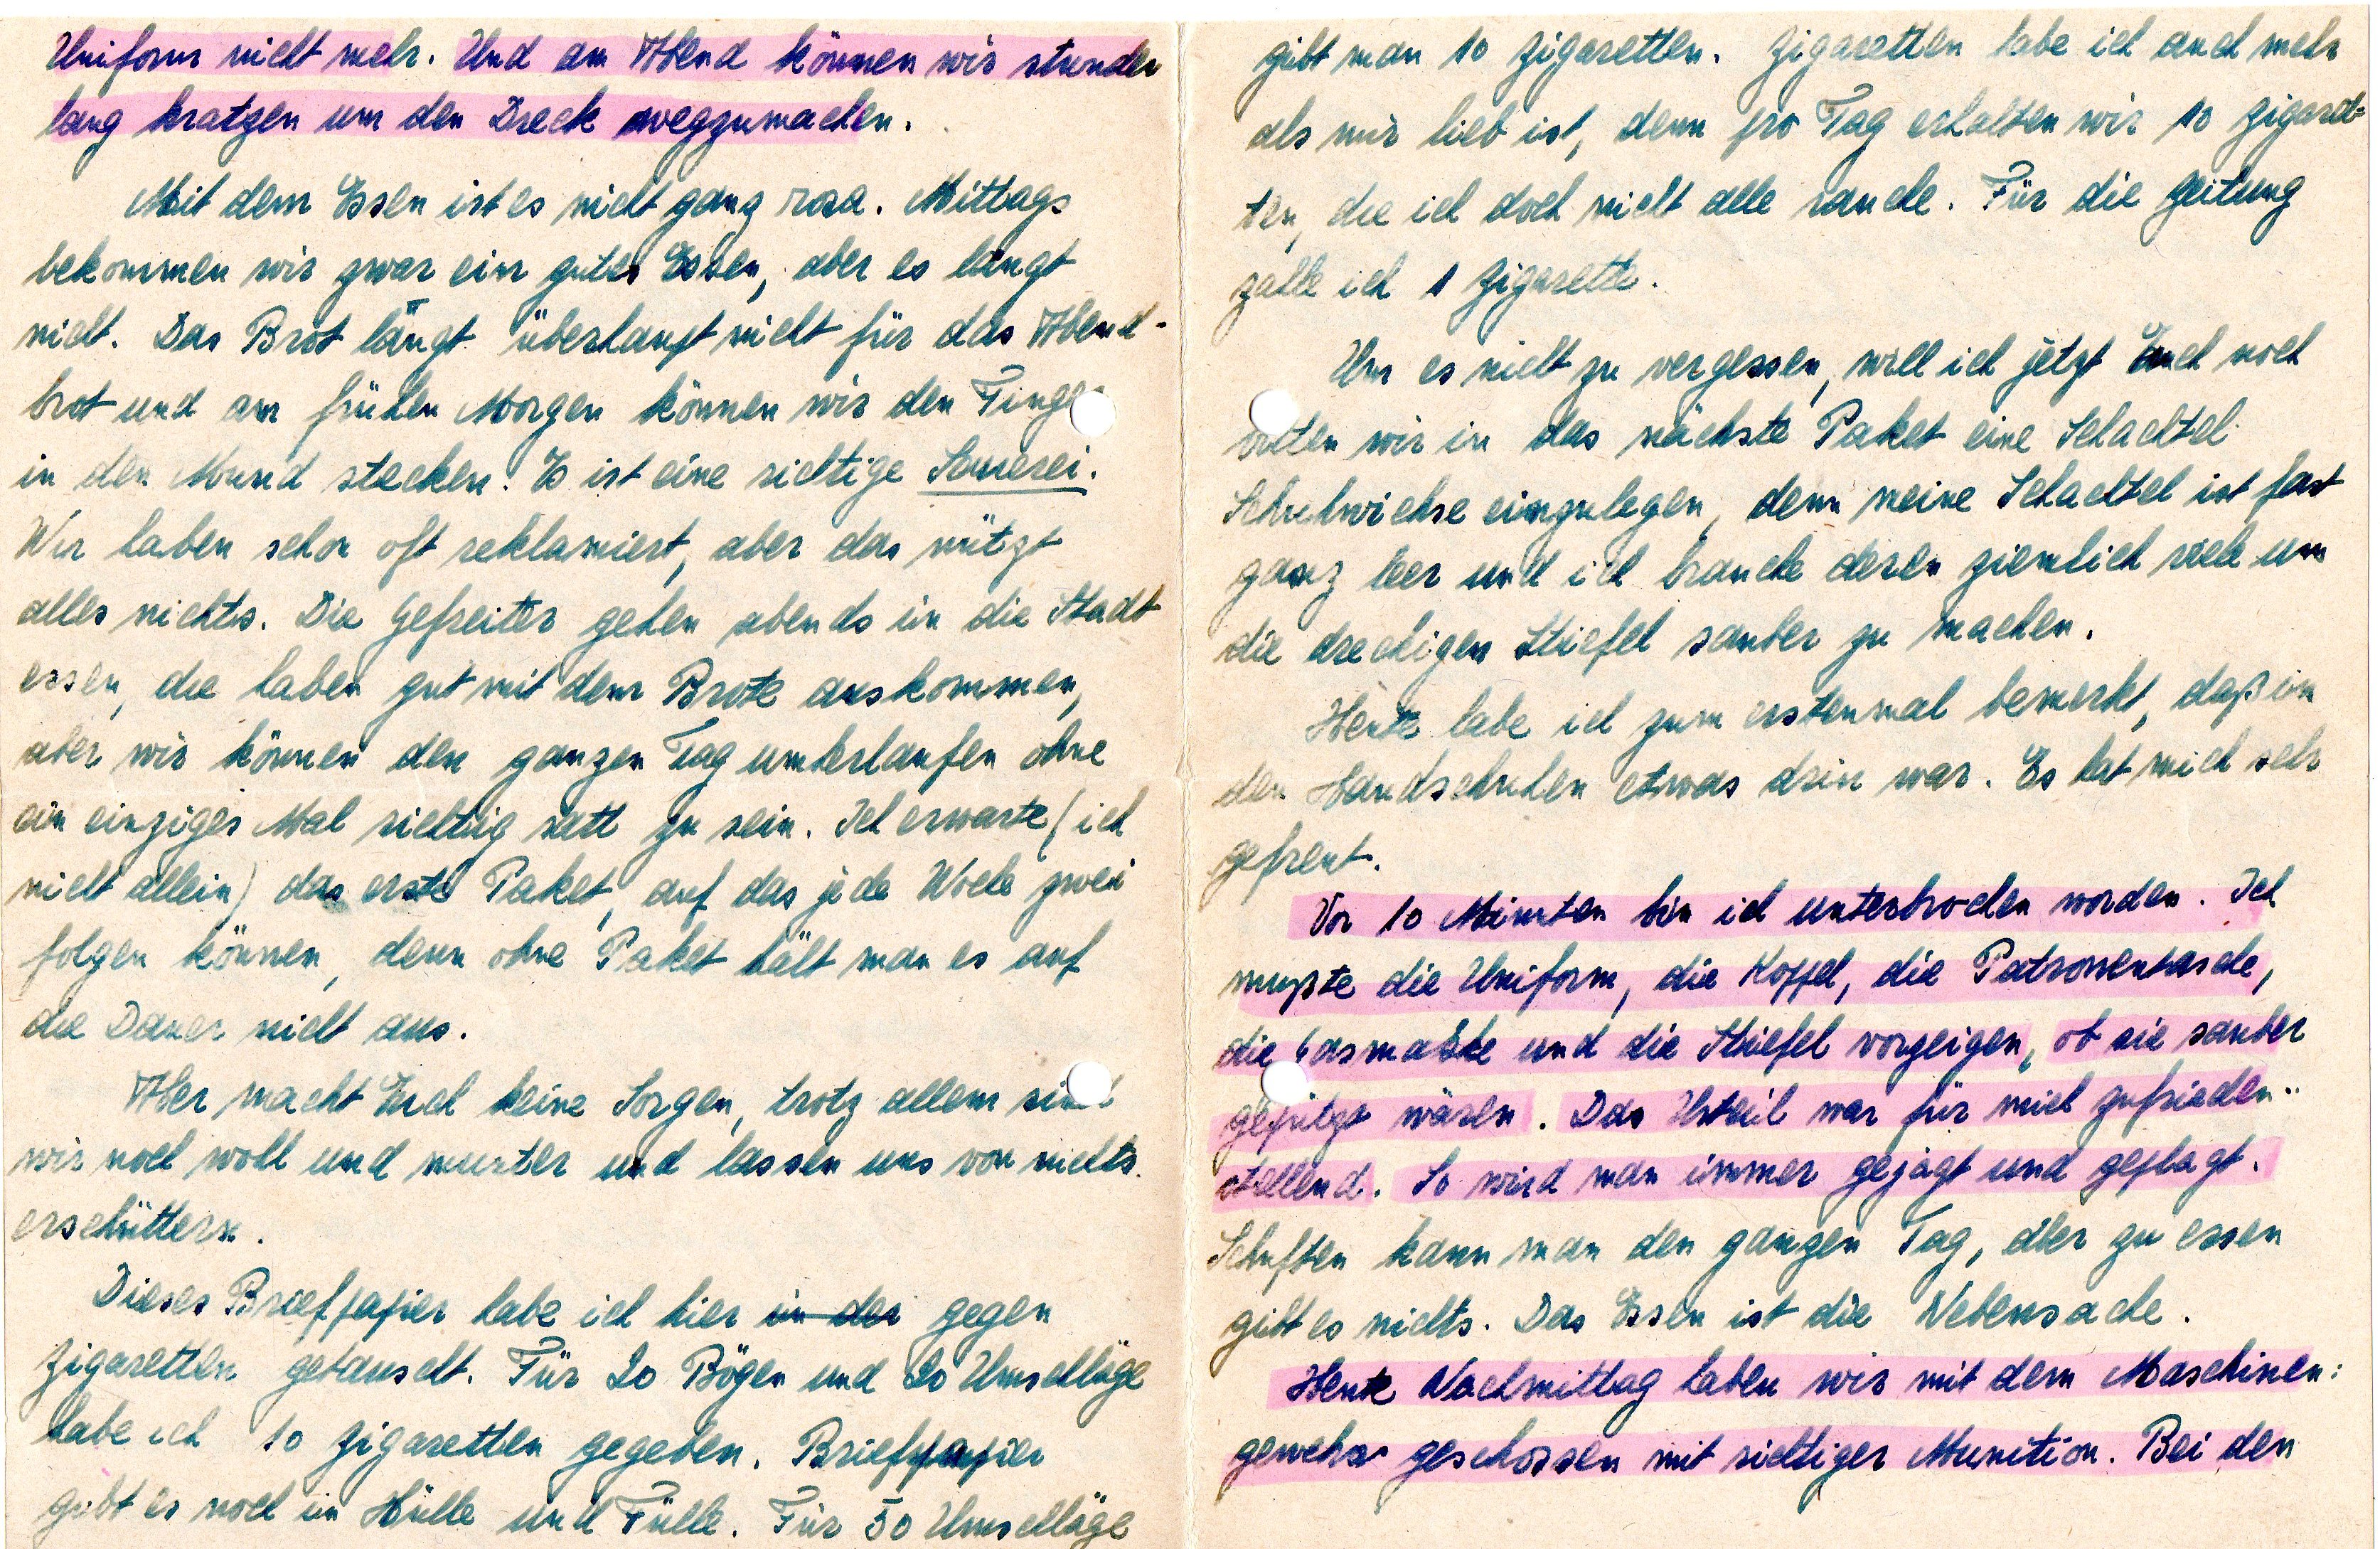 Uniform nicht mehr. Und am Abend können wir stunden
lang kratzen um den Dreck wegzumachen.
Mit dem Essen ist es nicht ganz rosa. Mittags
bekommen wir zwar ein gutes Essen, aber es langt
nicht. Das Brot längt überhaupt nicht für das Abend-
brot und am frühen Morgen können wir den Finge
in den Mund stecken! Es ist eine richtige Sauerei.
Wir haben schon oft reklamiert, aber das nützt
alles nichts. Die Gefreiter gehen abends in die Stadt
essen, die haben gut mit dem Brote auskommen,
aber wir können den ganzen Tag umherlaufen ohne
ein einziges Mal richtig satt zu sein. Ich erwarte (ich
nicht allein) das erste Paket, auf das jede Woche zwei
folgen können, denn ohne Paket hält man es auf
die Dauer nicht aus.
Aber macht Euch keine Sorgen, trotz allem sind
wir noch wohl und munter und lassen uns von nichts
erschüttern.
Dieses Briefpapier habe ich hier in der gegen
Zigaretten getauscht. Für 20 Bögen und 20 Umschläge
habe ich 10 Zigaretten gegeben. Briefpapier
gibt es noch in Hülle und Fülle. Für 50 Umschläge
gibt man 10 Zigaretten. Zigaretten habe ich auch mehr
als mir lieb ist, denn pro Tag erhalten wir 10 Zigaret-
ten, die ich doch nicht alle rauche. Für die Zeitung
zahle ich 1 Zigarette.
Um es nicht zu vergessen, will ich jetzt Euch noch
bitten mir in das nächste Paket eine Schachtel
Schuhwichse einzulegen, denn meine Schachtel ist fast
ganz leer und ich brauche deren ziemlich viele um
die dreckigen Stiefel sauber zu machen.
Heute habe ich zum erstenmal bemerkt, daß in
den Handschuhen etwas drin war. Es hat mich sehr
gefreut.
Vor 10 Minuten bin ich unterbrochen worden. Ich
mußte die Uniform, die Koppel, die Patronentasche,
die Gasmaske und die Stiefel vorzeigen, ob sie sauber
geputzt wären. Das Urteil war für mich zufrieden-
stellend. So wird man immer gejagt und geplagt.
Schuften kann man den ganzen Tag, aber zu essen
gibt es nichts. Das Essen ist die Nebensache.
Heute Nachmittag haben wir mit dem Maschinen:
gewehr geschossen mit richtiger Munition. Bei den